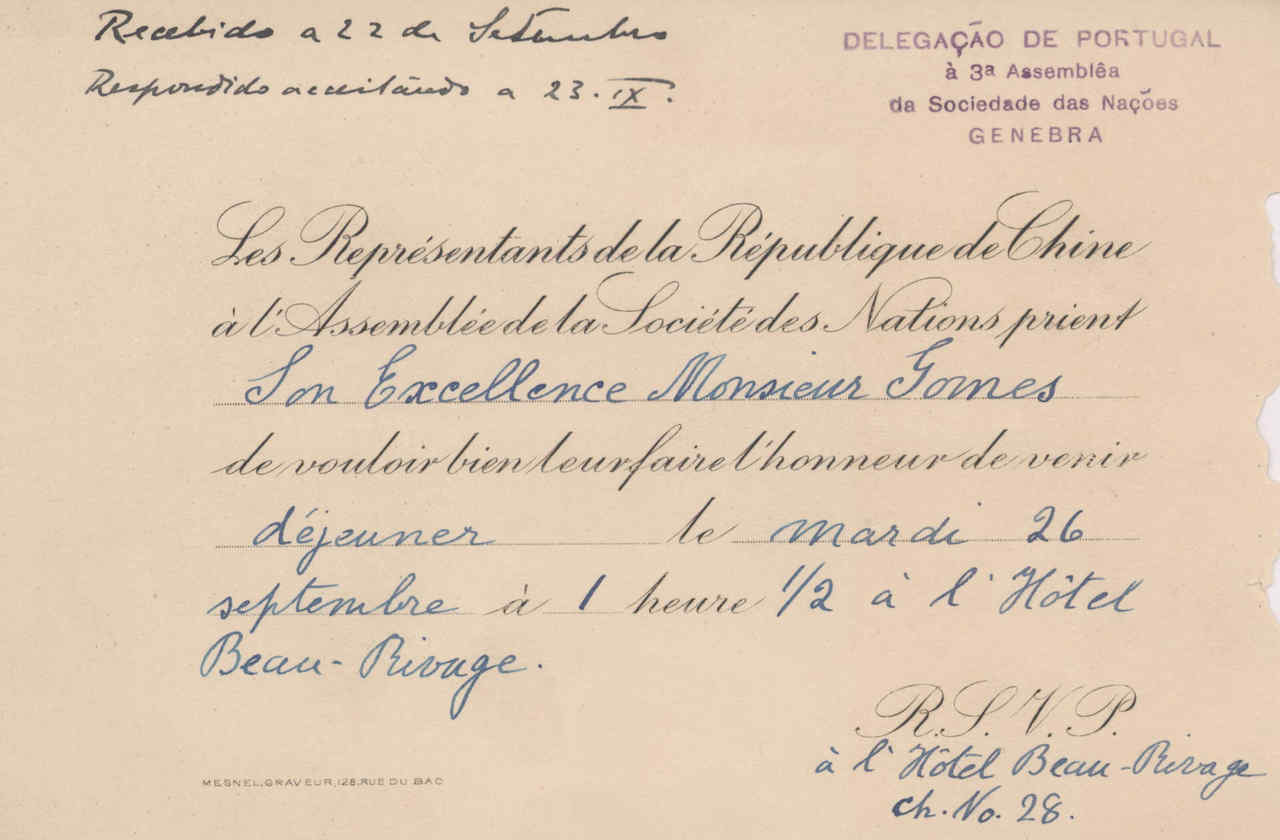 Recebido a 22 de Setembro
Respondido aceitando a 23. IX.
DELEGAÇÃO DE PORTUGAL
à 3ª Assemblêa
da Sociedade das Nações
GENEBRA
Les Représentants de la République de Chine
à l'Assemblée de la Société des Nations prient
Son Excellence Monsieur Gomes
de vouloir bien leur faire l'honneur de venir
déjeuner le mardi 26
septembre à 1 heure 1/2 à l'Hôtel
Beau-Rivage.
R.S.V.P.
à l'Hôtel Beau-Rivage
ch. No. 28.
MESNEL, GRAVEUR, 128, RUE DU BAC